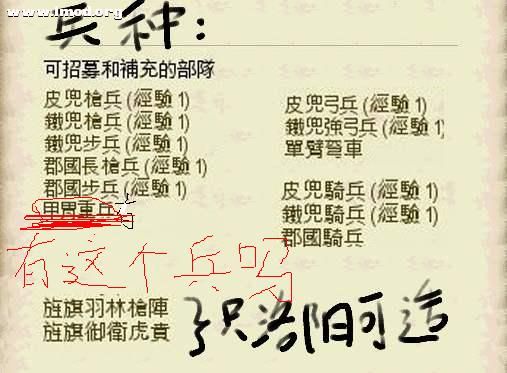 www.imod.org
兵种:
可招募和補充的部隊
皮兜槍兵(經驗1)
鐵兜槍兵(經驗1)
鐵兜步兵(經驗1)
郡國長槍兵(經驗1)
郡國步兵(經驗1)
甲胄重兵
有这个兵吗
旌旗羽林槍陣
旌旗御衛虎賁
皮兜弓兵(經驗1)
鐵兜強弓兵(經驗1)
單臂弩車
皮兜騎兵(經驗1)
鐵兜騎兵(經驗1)
郡國騎兵
只洛阳可造